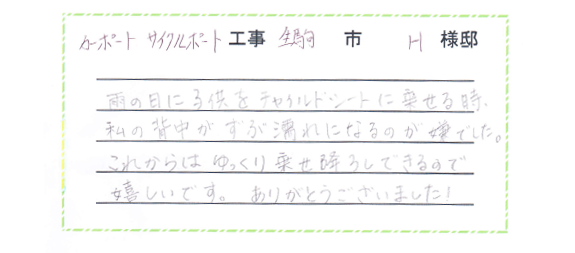 カーポート サイクルポート 工事 生駒 市 H 様邸
雨の日に子供をチャイルドシートに乗せる時、
私の背中がずぶ濡れになるのが嫌でした。
これからはゆっくり乗せ降ろしできるので
嬉しいです。ありがとうございました!